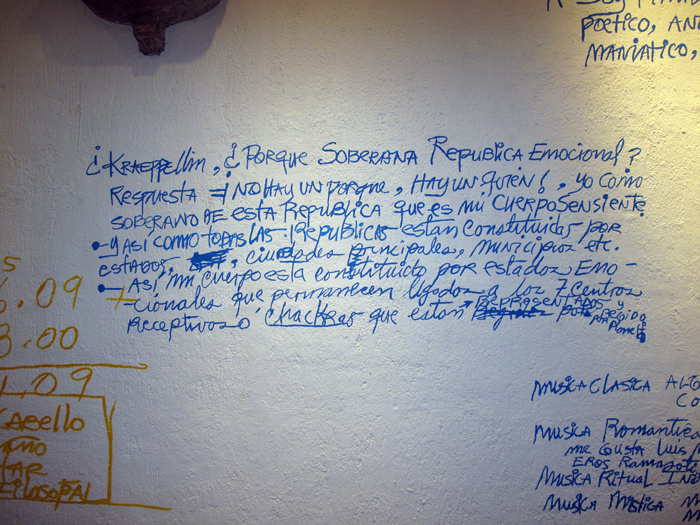 POETICO, AN
MANIATICO,
¿KRAEPPELLIN, ¿PORQUE SOBERANA REPUBLICA EMOCIONAL?
RESPUESTA = ¡NO HAY UN PORQUE, HAY UN QUIEN!, YO COMO
SOBERANO DE ESTA REPUBLICA QUE ES MI CUERPO SENSIENTE
- Y ASI COMO TODAS LAS REPUBLICAS ESTAN CONSTITUIDAS POR
ESTADOS, CIUDADES PRINCIPALES, MUNICIPIOS ETC.
- ASI, MI CUERPO ESTA CONSTITUIDO POR ESTADOS EMO-
-CIONALES QUE PERMANECEN LIGADOS A LOS 7 CENTROS
RECEPTIVOS O CHACKRAS QUE ESTAN REPRESENTADOS Y REGIDO
S
5.09
7
3.00
1.09
CABELLO
FILOSOFAL
MUSICA CLASICA ALG
CO
MUSICA ROMANTICA
ME GUSTA LUIS M
EROS RAMAZOTE
MUSICA RITUAL IND
MUSICA MISTICA M